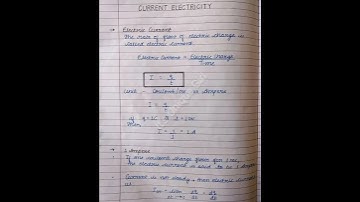 CURRENT ELECTRICITY
→ Electric Current
The rate of flow of electric charge is
called electric current.
Electric Current = Electric Charge / Time
I = q/t
Unit - Coulomb/sec or Ampere
I = q/t
if q = 1C & t = 1 sec
then
I = 1/1 = 1A
→ 1 Ampere
If one coulomb charge flow for 1 sec,
the electric current is said to be 1
Current is not steady, then electric current
is